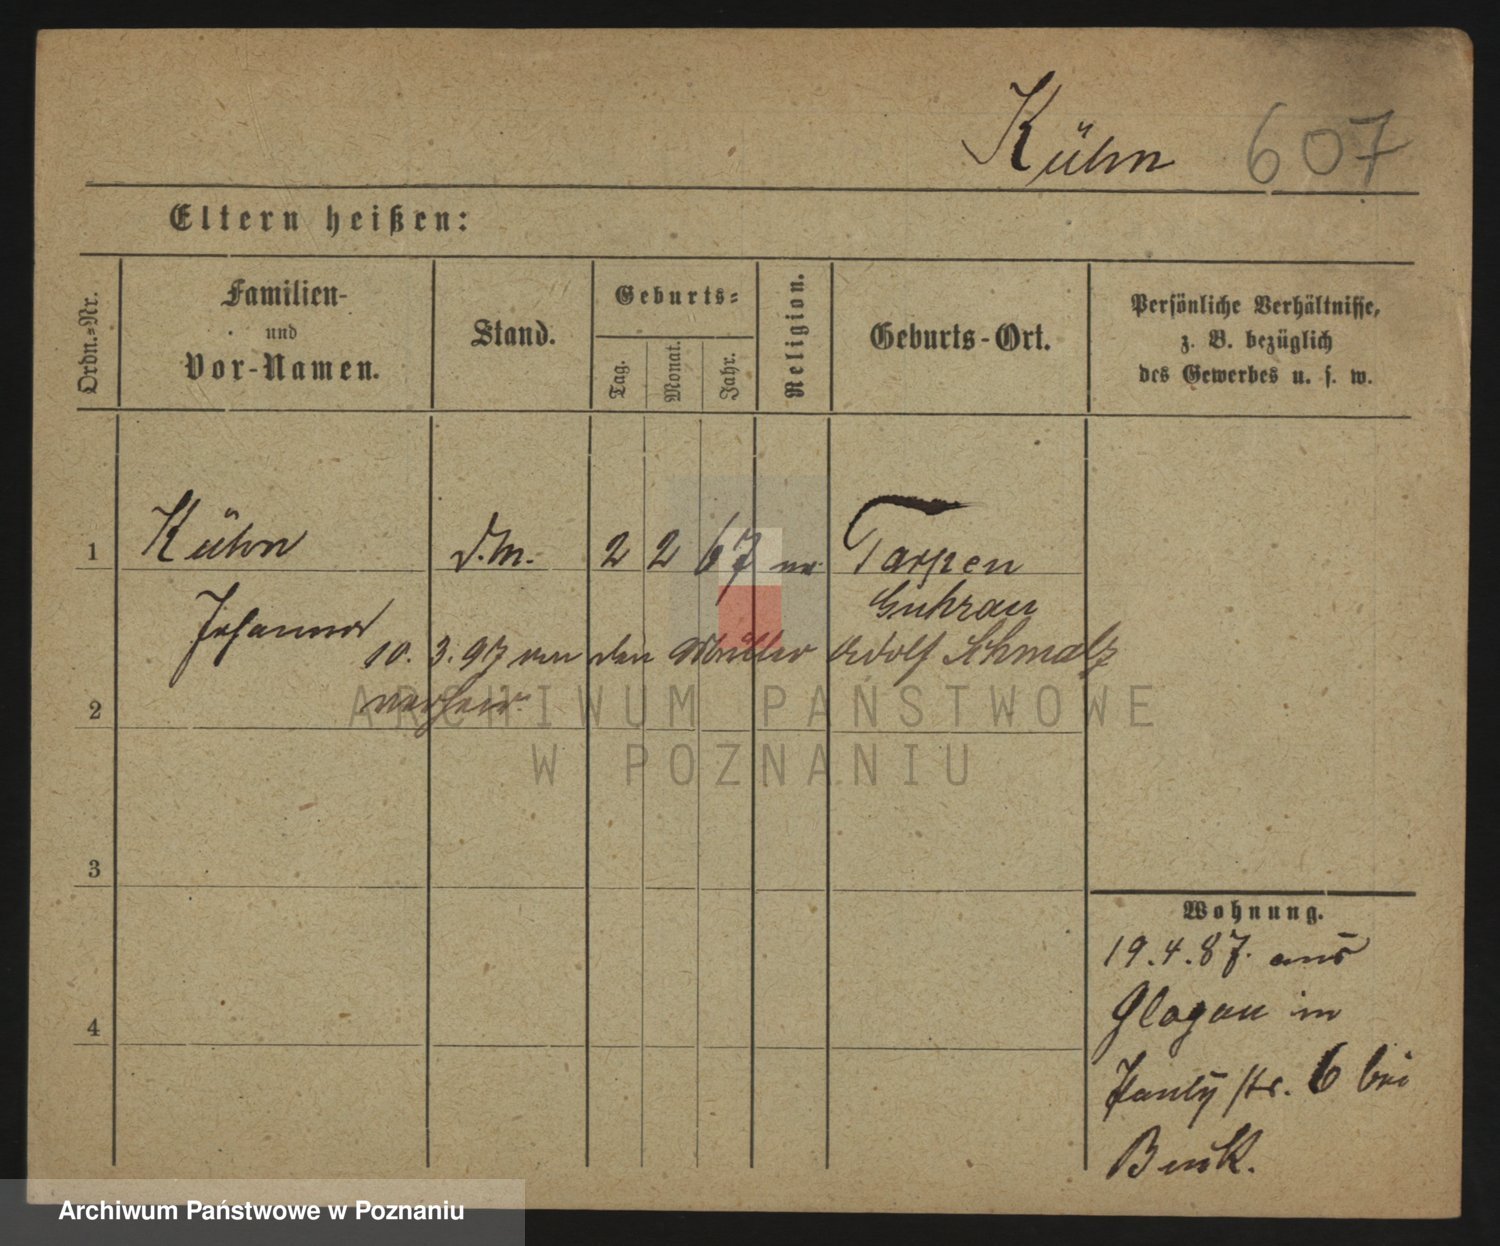 Kühn 607
Eltern heißen:
Ordn.=Nr.
Familien-
und
Vor-Namen.
Stand.
Geburts=
Tag.
Monat.
Jahr.
Religion.
Geburts-Ort.
Persönliche Verhältnisse,
z. B. bezüglich
des Gewerbes u. s. w.
1 Kühn d.M. 2 2 67 Tarpen
Johanna Guhrau
10. 3. 97 den Müller Adolf Schmalz
verheir.
2
3
4
Wohnung.
19.4.87. aus
Glogau in
str. 6 bei
ARCHIWUM PAŃSTWOWE
W POZNANIU
Archiwum Państwowe w Poznaniu